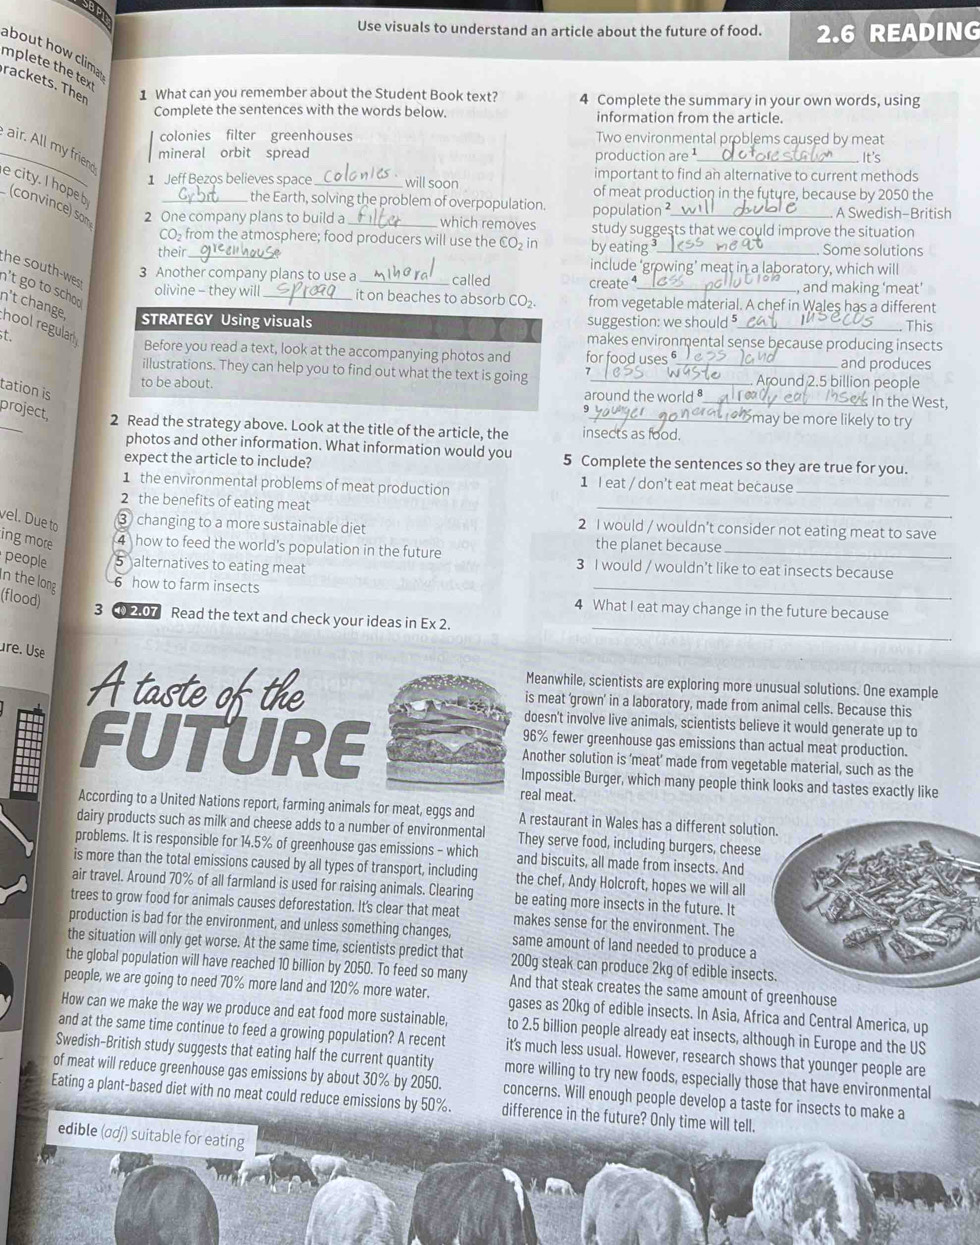 SB P
Use visuals to understand an article about the future of food.
2.6 READING
about how climate
mplete the text
rackets. Then
air. All my friends
e city. I hope by
(convince) som
the south-west
n't go to school
n't change,
hool regularly
st.
tation is
project,
vel. Due to
ing more
people
In the long
(flood)
ure. Use
1 What can you remember about the Student Book text?
Complete the sentences with the words below.
colonies filter greenhouses
mineral orbit spread
1 Jeff Bezos believes space colonies. will soon
orbit the Earth, solving the problem of overpopulation.
2 One company plans to build a filter which removes
CO₂ from the atmosphere; food producers will use the CO₂ in
their greenhouse
3 Another company plans to use a mineral called
olivine – they will spread it on beaches to absorb CO₂.
STRATEGY Using visuals
Before you read a text, look at the accompanying photos and
illustrations. They can help you to find out what the text is going
to be about.
2 Read the strategy above. Look at the title of the article, the
photos and other information. What information would you
expect the article to include?
1 the environmental problems of meat production
2 the benefits of eating meat
3 changing to a more sustainable diet
4 how to feed the world's population in the future
5 alternatives to eating meat
6 how to farm insects
3 2.07 Read the text and check your ideas in Ex 2.
4 Complete the summary in your own words, using
information from the article.
Two environmental problems caused by meat
production are ¹ deforestation It's
important to find an alternative to current methods
of meat production in the future, because by 2050 the
population ² will double . A Swedish–British
study suggests that we could improve the situation
by eating ³ less meat . Some solutions
include 'growing' meat in a laboratory, which will
create ⁴ less pollution , and making 'meat'
from vegetable material. A chef in Wales has a different
suggestion: we should ⁵ eat insects . This
makes environmental sense because producing insects
for food uses ⁶ less land and produces
⁷ less waste . Around 2.5 billion people
around the world ⁸ already eat insects In the West,
⁹ younger generations may be more likely to try
insects as food.
5 Complete the sentences so they are true for you.
1 I eat / don't eat meat because
2 I would / wouldn't consider not eating meat to save
the planet because
3 I would / wouldn't like to eat insects because
4 What I eat may change in the future because
A taste of the
FUTURE
According to a United Nations report, farming animals for meat, eggs and
dairy products such as milk and cheese adds to a number of environmental
problems. It is responsible for 14.5% of greenhouse gas emissions – which
is more than the total emissions caused by all types of transport, including
air travel. Around 70% of all farmland is used for raising animals. Clearing
trees to grow food for animals causes deforestation. It's clear that meat
production is bad for the environment, and unless something changes,
the situation will only get worse. At the same time, scientists predict that
the global population will have reached 10 billion by 2050. To feed so many
people, we are going to need 70% more land and 120% more water.
How can we make the way we produce and eat food more sustainable,
and at the same time continue to feed a growing population? A recent
Swedish-British study suggests that eating half the current quantity
of meat will reduce greenhouse gas emissions by about 30% by 2050.
Eating a plant-based diet with no meat could reduce emissions by 50%.
edible (adj) suitable for eating
Meanwhile, scientists are exploring more unusual solutions. One example
is meat 'grown' in a laboratory, made from animal cells. Because this
doesn't involve live animals, scientists believe it would generate up to
96% fewer greenhouse gas emissions than actual meat production.
Another solution is 'meat' made from vegetable material, such as the
Impossible Burger, which many people think looks and tastes exactly like
real meat.
A restaurant in Wales has a different solution.
They serve food, including burgers, cheese
and biscuits, all made from insects. And
the chef, Andy Holcroft, hopes we will all
be eating more insects in the future. It
makes sense for the environment. The
same amount of land needed to produce a
200g steak can produce 2kg of edible insects.
And that steak creates the same amount of greenhouse
gases as 20kg of edible insects. In Asia, Africa and Central America, up
to 2.5 billion people already eat insects, although in Europe and the US
it's much less usual. However, research shows that younger people are
more willing to try new foods, especially those that have environmental
concerns. Will enough people develop a taste for insects to make a
difference in the future? Only time will tell.